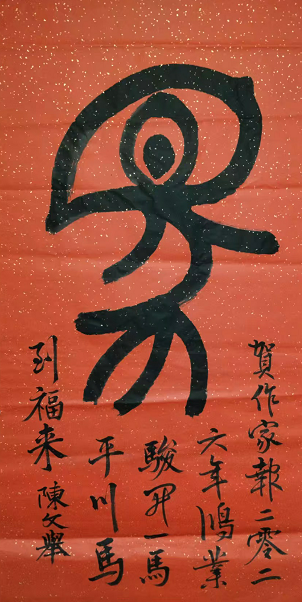 賀作家報二零二
六年鴻業
駿昇一馬
平川馬
到福来
陳文舉